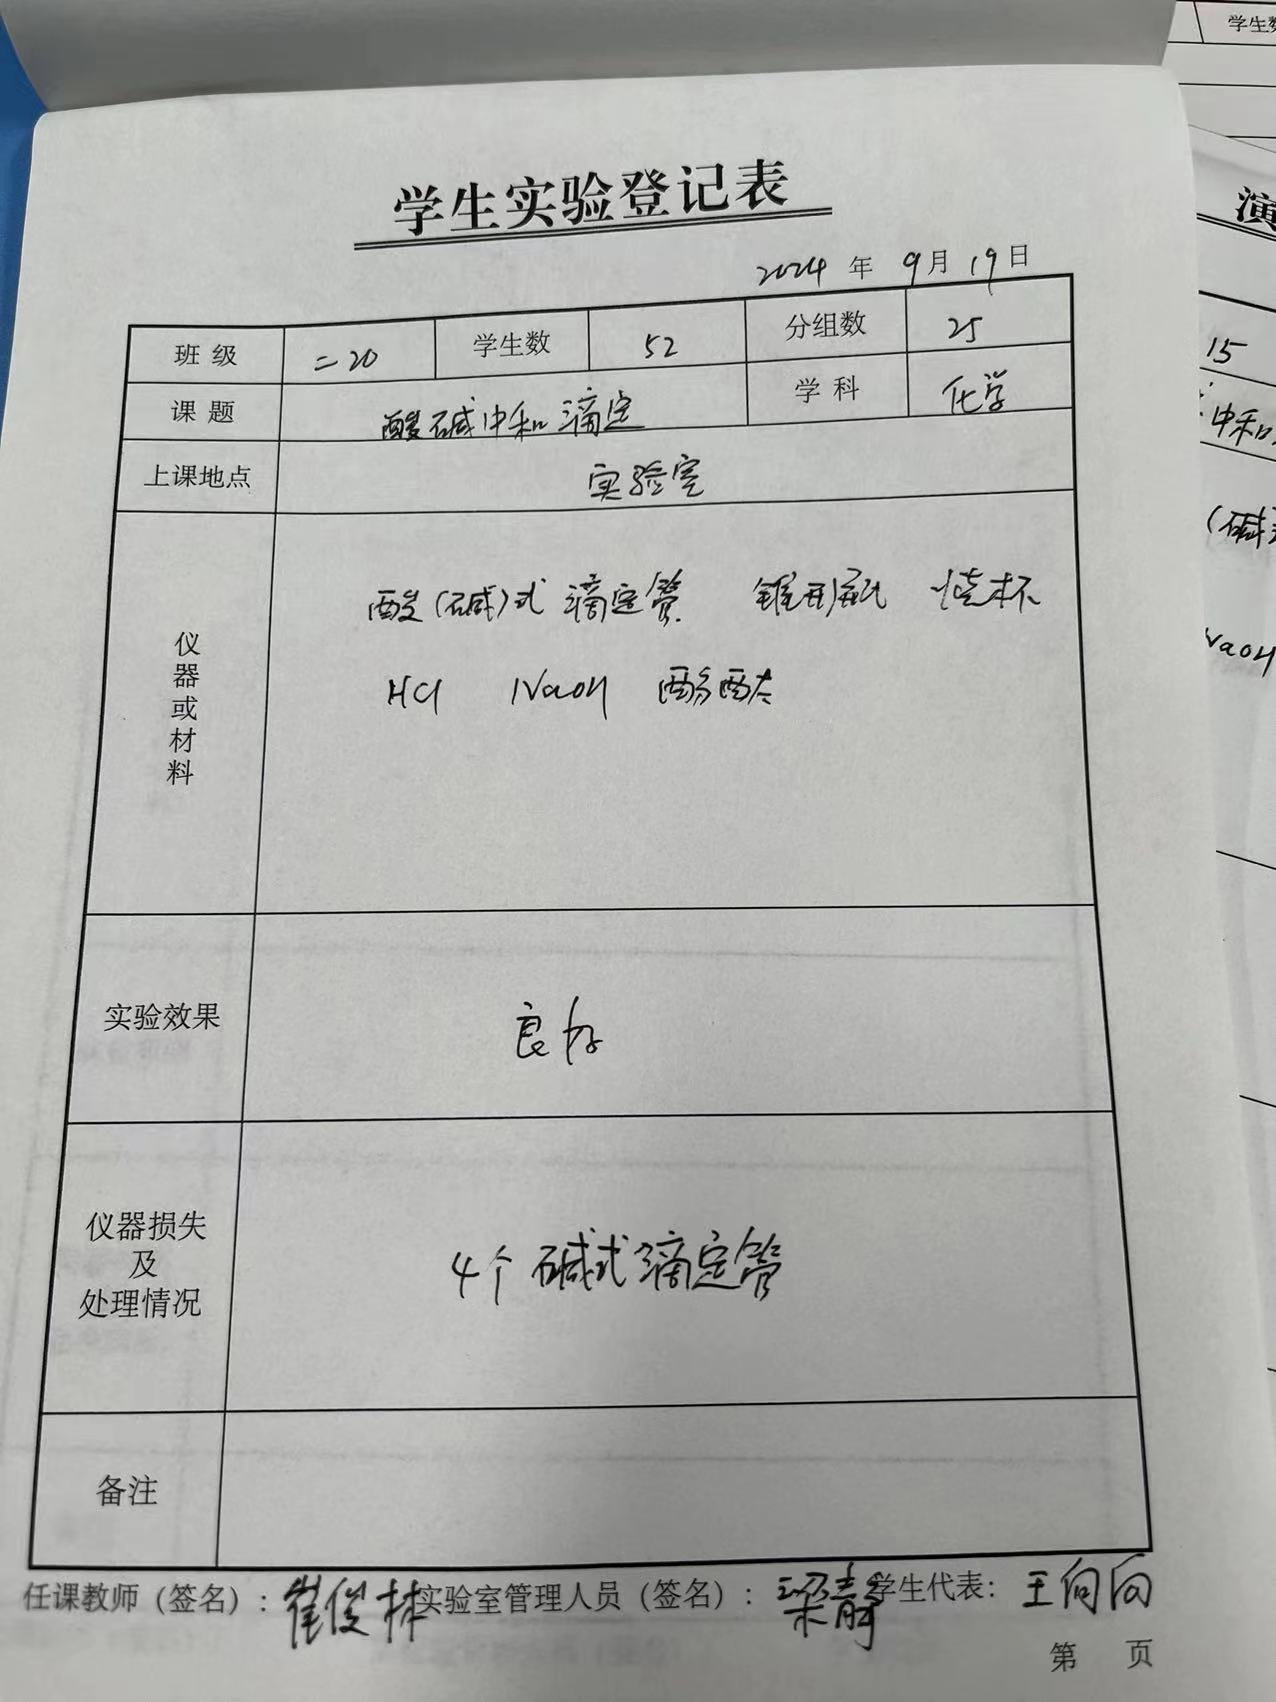 学生实验登记表
2024 年 9月 19日
班 级 二20 学生数 52 分组数 25
课 题 酸碱中和滴定 学 科 化学
上课地点 实验室
仪器或材料
酸(碱)式滴定管 锥形瓶 烧杯
HCl NaOH 酚酞
实验效果 良好
仪器损失
及
处理情况
4个碱式滴定管
备注
任课教师（签名）: 崔俊林 实验室管理人员（签名）: 梁静 学生代表: 王向向
第 页
学生数
演
15
中和
(碱)
NaOH